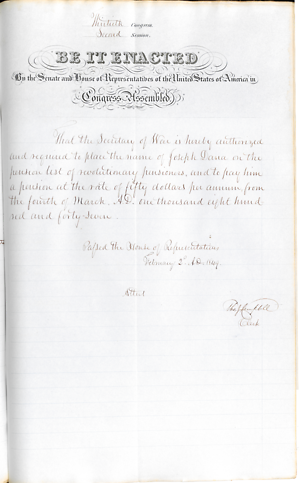 Thirtieth Congress
Second Session
BE IT ENACTED
By the Senate and House of Representatives of the United States of America in
Congress Assembled
That the Secretary of War is hereby authorized
and required to place the name of Joseph Dana on the
pension list of revolutionary pensioners, and to pay him
a pension at the rate of fifty dollars per annum from
the fourth of March A.D. one thousand eight hund
red and forty seven.
Passed the House of Representatives
February 2d A.D. 1849
Attest
Clerk